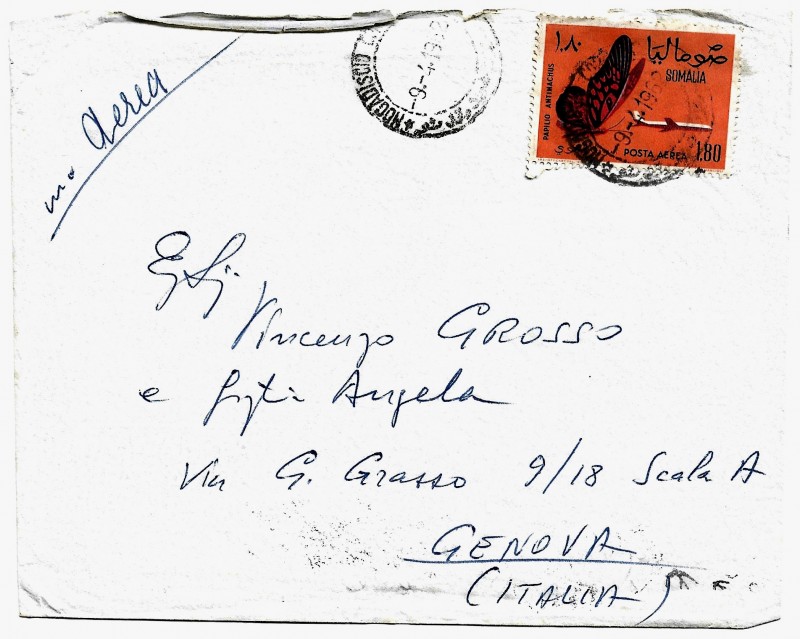 via Aerea
MOGADISCIO
-9-4-196
١٫٨٠
صوماليا
SOMALIA
PAPILIO ANTIMACHUS
-9-4-196
POSTA AEREA
1.80
Eg Sig.
Vincenzo GROSSO
e figlia Angela
Via G. Grasso 9/18 Scala A
GENOVA
(ITALIA)